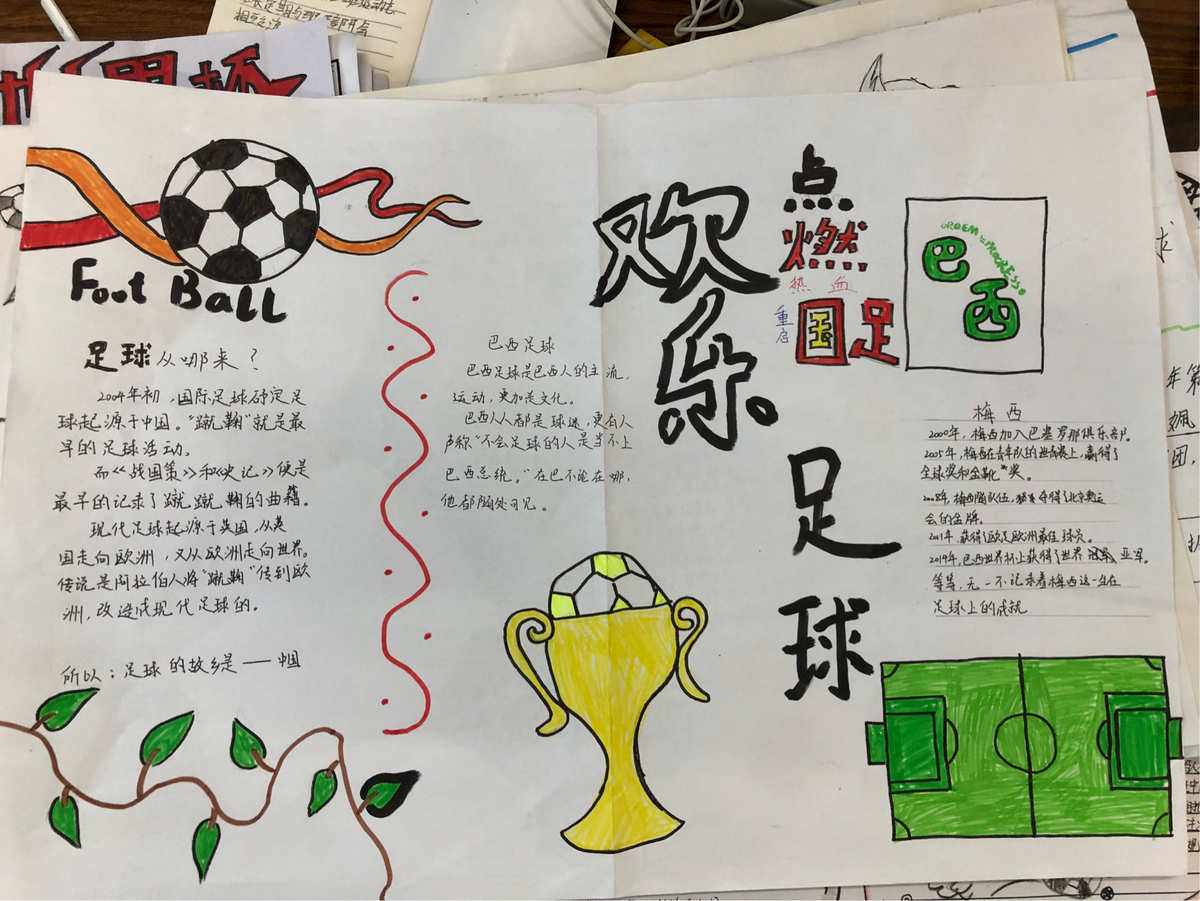 Foot Ball
足球从哪来？
2004年初，国际足球确定足
球起源于中国。"蹴鞠"就是最
早的足球活动。
而《战国策》和《史记》便是
最早的记录了蹴蹴鞠的曲籍。
现代足球起源于英国，从英
国走向欧洲，又从欧洲走向世界。
传说是阿拉伯人将"蹴鞠"传到欧
洲，改造成现代足球的。
所以：足球的故乡是——中国
巴西足球
巴西足球是巴西人的主流，
运动，更加是文化。
巴西人人都是球迷，更有人
声称"不会足球的人是当不上
巴西总统。"在巴不论在哪，
他都随处可见。
欢乐足球
点燃
热血
重启
国足
ORDEM E PROGRESSO
巴西
梅西
2000年，梅西加入巴塞罗那俱乐部。
2005年，梅西在青年队的世青赛上，赢得了
全球奖和金靴"奖。
2008年，梅西随队伍，夺得了北京奥运
会的金牌。
2011年，获得了欧足欧洲最佳球员。
2014年，巴西世界杯上获得了世界亚军。
等等，无一不记录着梅西这一生在
足球上的成就